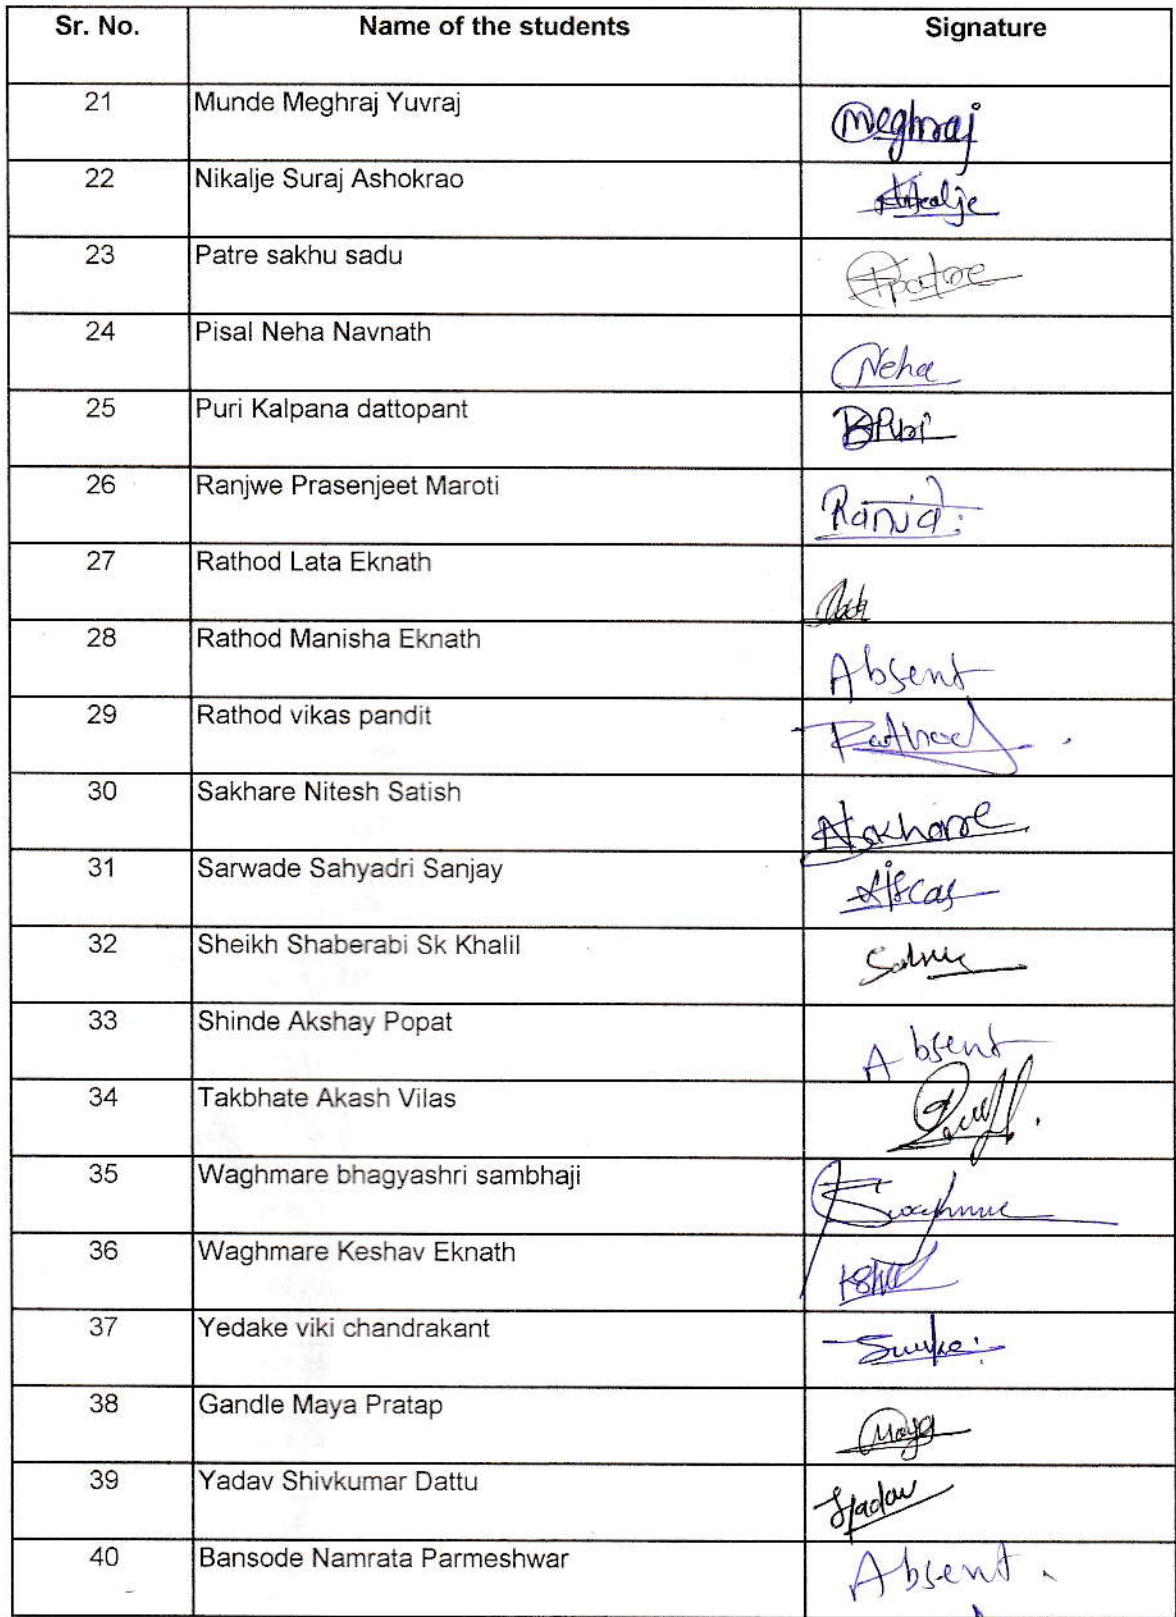 Sr. No. Name of the students Signature
21 Munde Meghraj Yuvraj Meghraj
22 Nikalje Suraj Ashokrao
23 Patre sakhu sadu
24 Pisal Neha Navnath Neha
25 Puri Kalpana dattopant
26 Ranjwe Prasenjeet Maroti
27 Rathod Lata Eknath
28 Rathod Manisha Eknath Absent
29 Rathod vikas pandit Rathod
30 Sakhare Nitesh Satish
31 Sarwade Sahyadri Sanjay
32 Sheikh Shaberabi Sk Khalil
33 Shinde Akshay Popat Absent
34 Takbhate Akash Vilas
35 Waghmare bhagyashri sambhaji
36 Waghmare Keshav Eknath
37 Yedake viki chandrakant
38 Gandle Maya Pratap Maya
39 Yadav Shivkumar Dattu
40 Bansode Namrata Parmeshwar Absent.